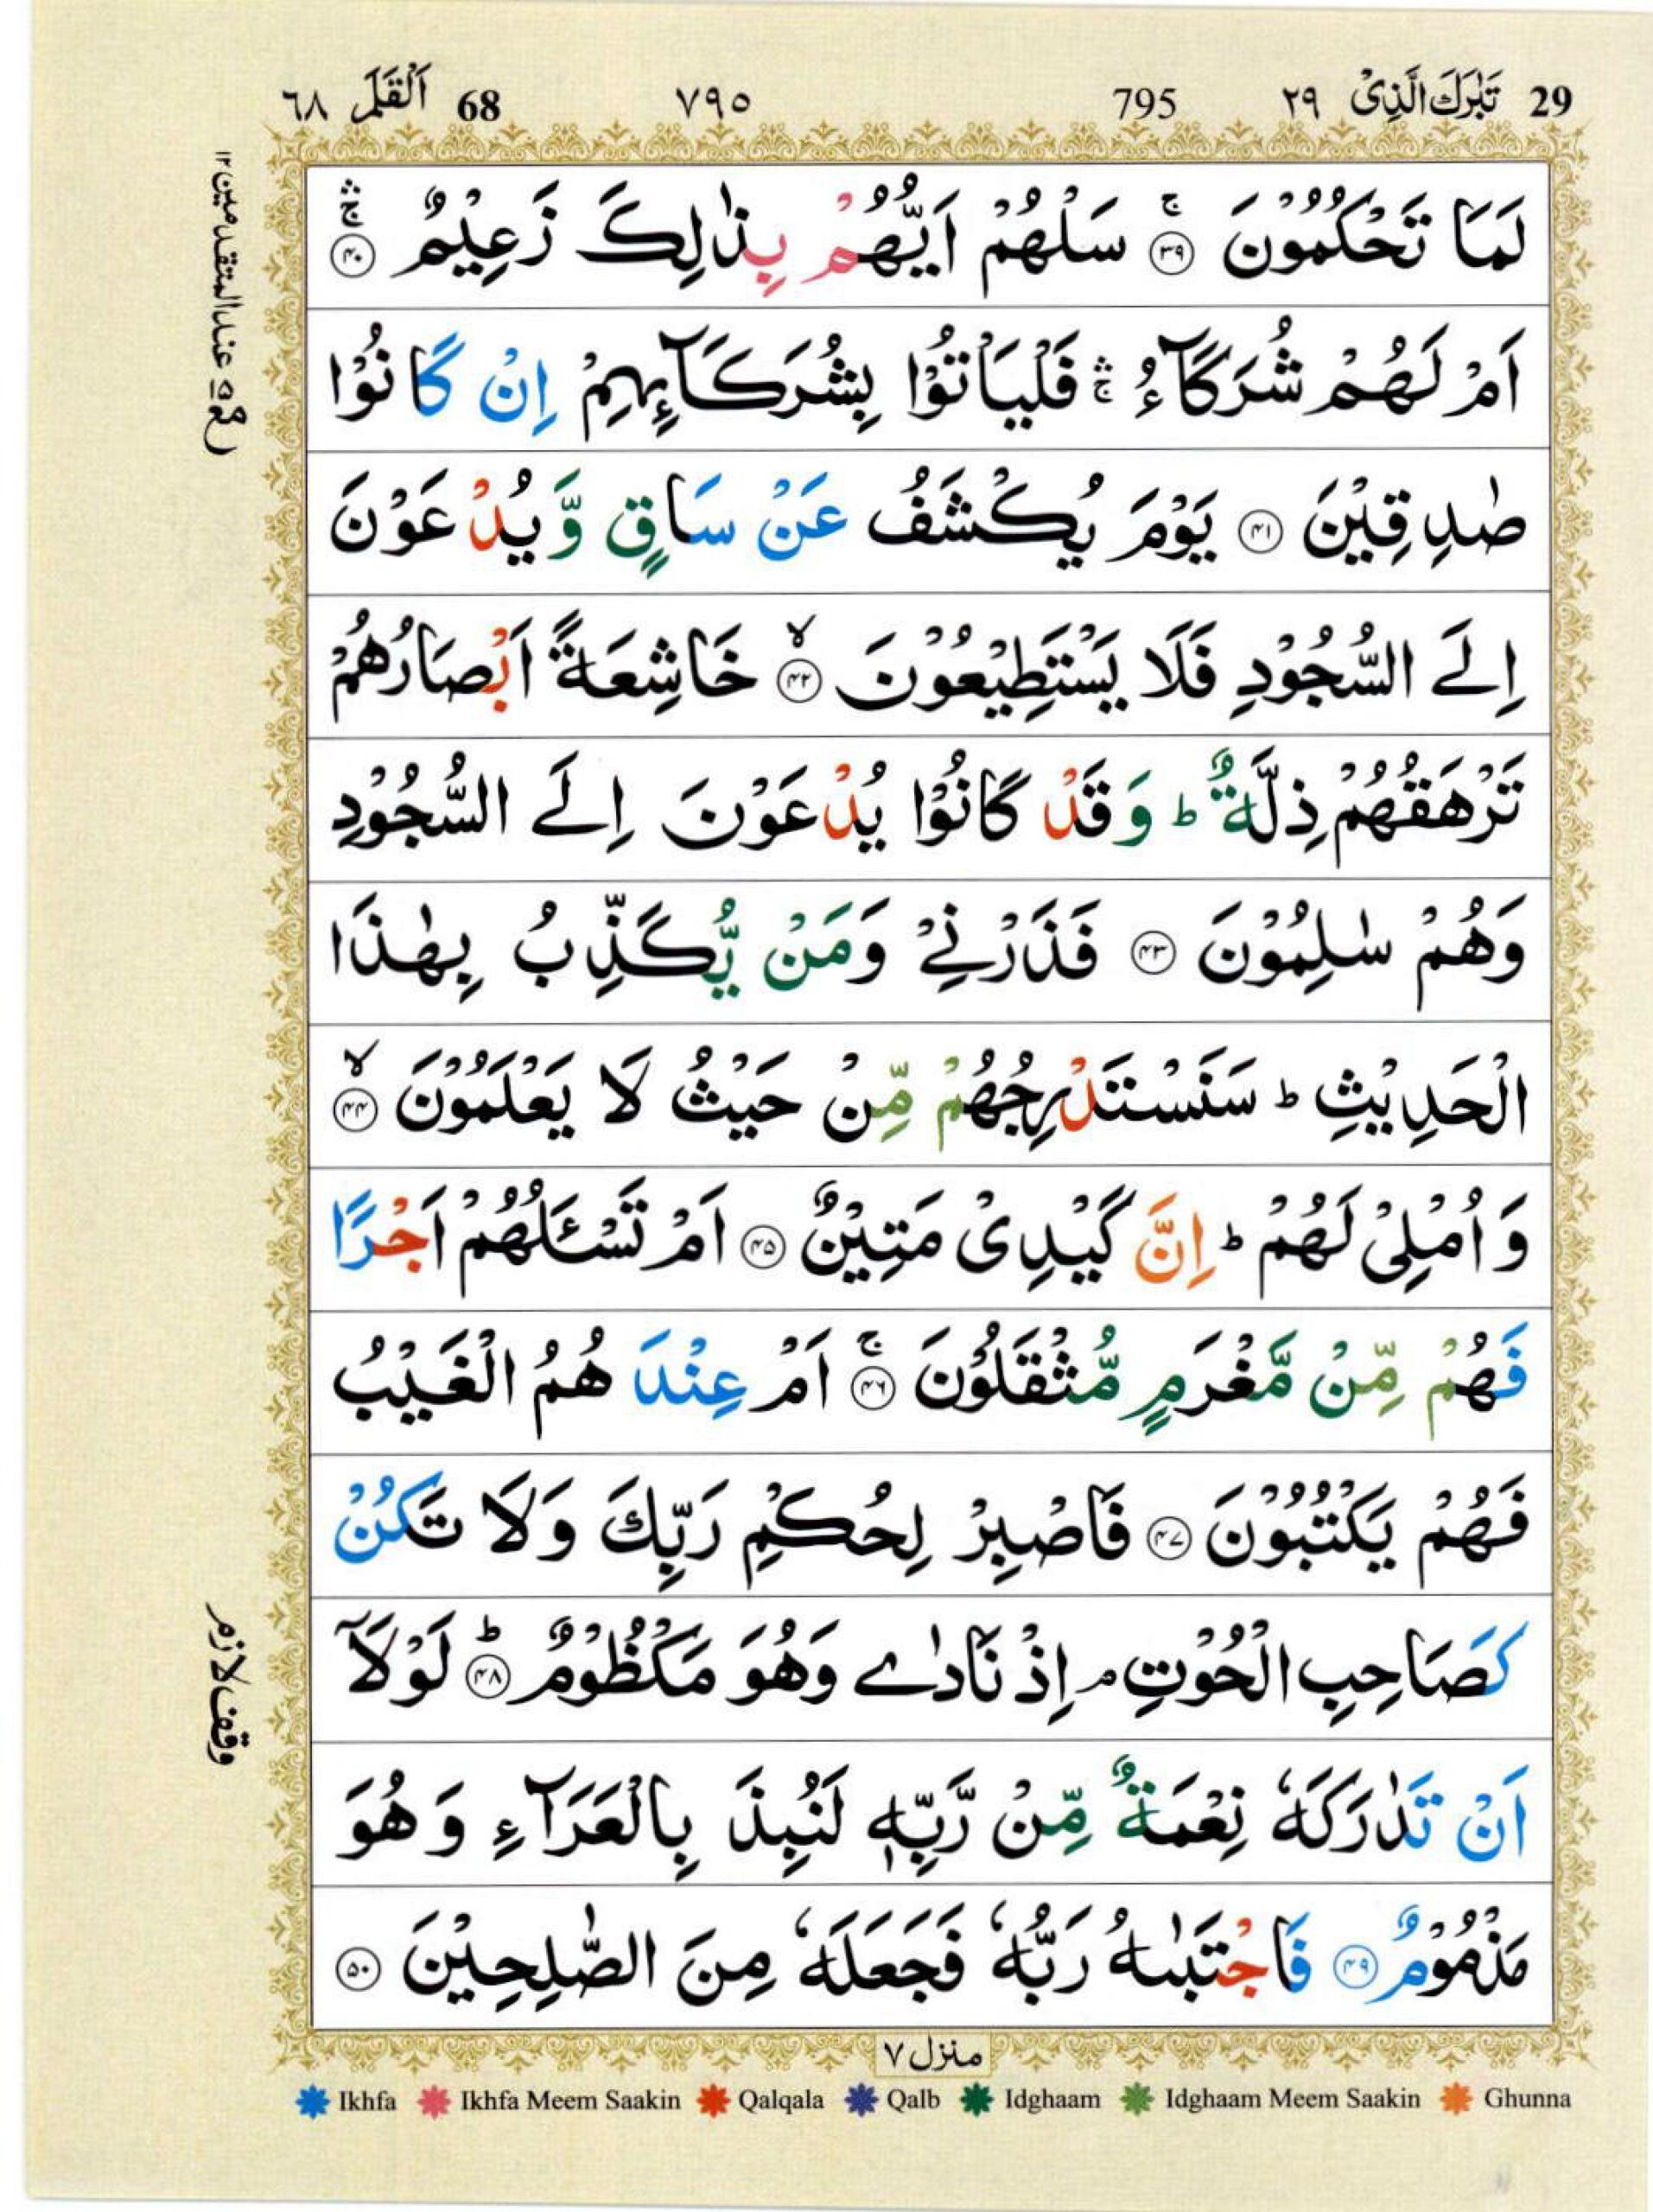 29 تَبٰرَكَ الَّذِیْ ٢٩ 795 ٧٩٥ 68 اَلْقَلَم ٦٨
لَمَا تَحْكُمُوْنَ ۚ ﴿۳۹﴾ سَلْهُمْ اَيُّهُمْ بِذٰلِكَ زَعِيْمٌ ۚۛ ﴿۴۰﴾
اَمْ لَهُمْ شُرَكَآءُ ۚۛ فَلْيَاْتُوْا بِشُرَكَآئِهِمْ اِنْ كَانُوْا
صٰدِقِيْنَ ﴿۴۱﴾ يَوْمَ يُكْشَفُ عَنْ سَاقٍ وَّيُدْعَوْنَ
اِلَى السُّجُوْدِ فَلَا يَسْتَطِيْعُوْنَ ۙ ﴿۴۲﴾ خَاشِعَةً اَبْصَارُهُمْ
تَرْهَقُهُمْ ذِلَّةٌ ؕ وَقَدْ كَانُوْا يُدْعَوْنَ اِلَى السُّجُوْدِ
وَهُمْ سٰلِمُوْنَ ﴿۴۳﴾ فَذَرْنِیْ وَمَنْ يُّكَذِّبُ بِهٰذَا
الْحَدِيْثِ ؕ سَنَسْتَدْرِجُهُمْ مِّنْ حَيْثُ لَا يَعْلَمُوْنَ ۙ ﴿۴۴﴾
وَاُمْلِیْ لَهُمْ ؕ اِنَّ كَيْدِیْ مَتِيْنٌ ﴿۴۵﴾ اَمْ تَسْـَٔلُهُمْ اَجْرًا
فَهُمْ مِّنْ مَّغْرَمٍ مُّثْقَلُوْنَ ۚ ﴿۴۶﴾ اَمْ عِنْدَ هُمُ الْغَيْبُ
فَهُمْ يَكْتُبُوْنَ ﴿۴۷﴾ فَاصْبِرْ لِحُكْمِ رَبِّكَ وَلَا تَكُنْ
كَصَاحِبِ الْحُوْتِ ۘ اِذْ نَادٰى وَهُوَ مَكْظُوْمٌ ؕ ﴿۴۸﴾ لَوْلَاۤ
اَنْ تَدٰرَكَهٗ نِعْمَةٌ مِّنْ رَّبِّهٖ لَنُبِذَ بِالْعَرَآءِ وَهُوَ
مَذْمُوْمٌ ﴿۴۹﴾ فَاجْتَبٰهُ رَبُّهٗ فَجَعَلَهٗ مِنَ الصّٰلِحِيْنَ ﴿۵۰﴾
منزل ٧
Ikhfa Ikhfa Meem Saakin Qalqala Qalb Idghaam Idghaam Meem Saakin Ghunna
وقف لازم